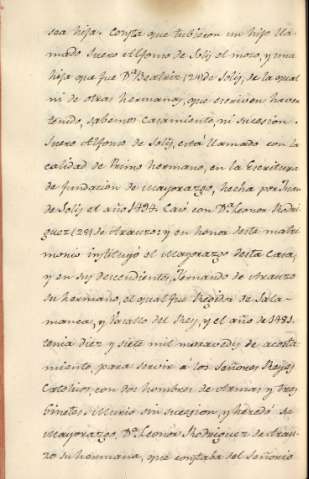 sea hija. Consta que tubieron un hijo lla-
mado Suero Alfonso de Solis el mozo, y una
hija que fue Dª Beatriz (24) de Solis, de la qual
ni de otras hermanas, que escriven haver
tenido, sabemos casamiento, ni sucesion.
Suero Alfonso de Solis, está llamado con la
calidad de Primo hermano, en la Escritura
de fundacion de Mayorazgo, hecha por Juan
de Solis el año 1494. Casó con Dª Leonor Rodri-
guez (28) de Arauzo; y en honor deste matri-
monio instituyó el Mayorazgo desta Casa,
y en sus descendientes, Fernando de Arauzo
su hermano, el qual fue Regidor de Sala-
manca, y Vasallo del Rey, y el año de 1481.
tenia diez y siete mil maravedis de acosta-
miento, para servir á los Señores Reyes
Catolicos, con dos hombres de Armas y tres
Ginetes. Murio sin sucesion, y heredó su
Mayorazgo, Dª Leonor Rodriguez de Arau-
zo su hermana, que constaba del Señorio